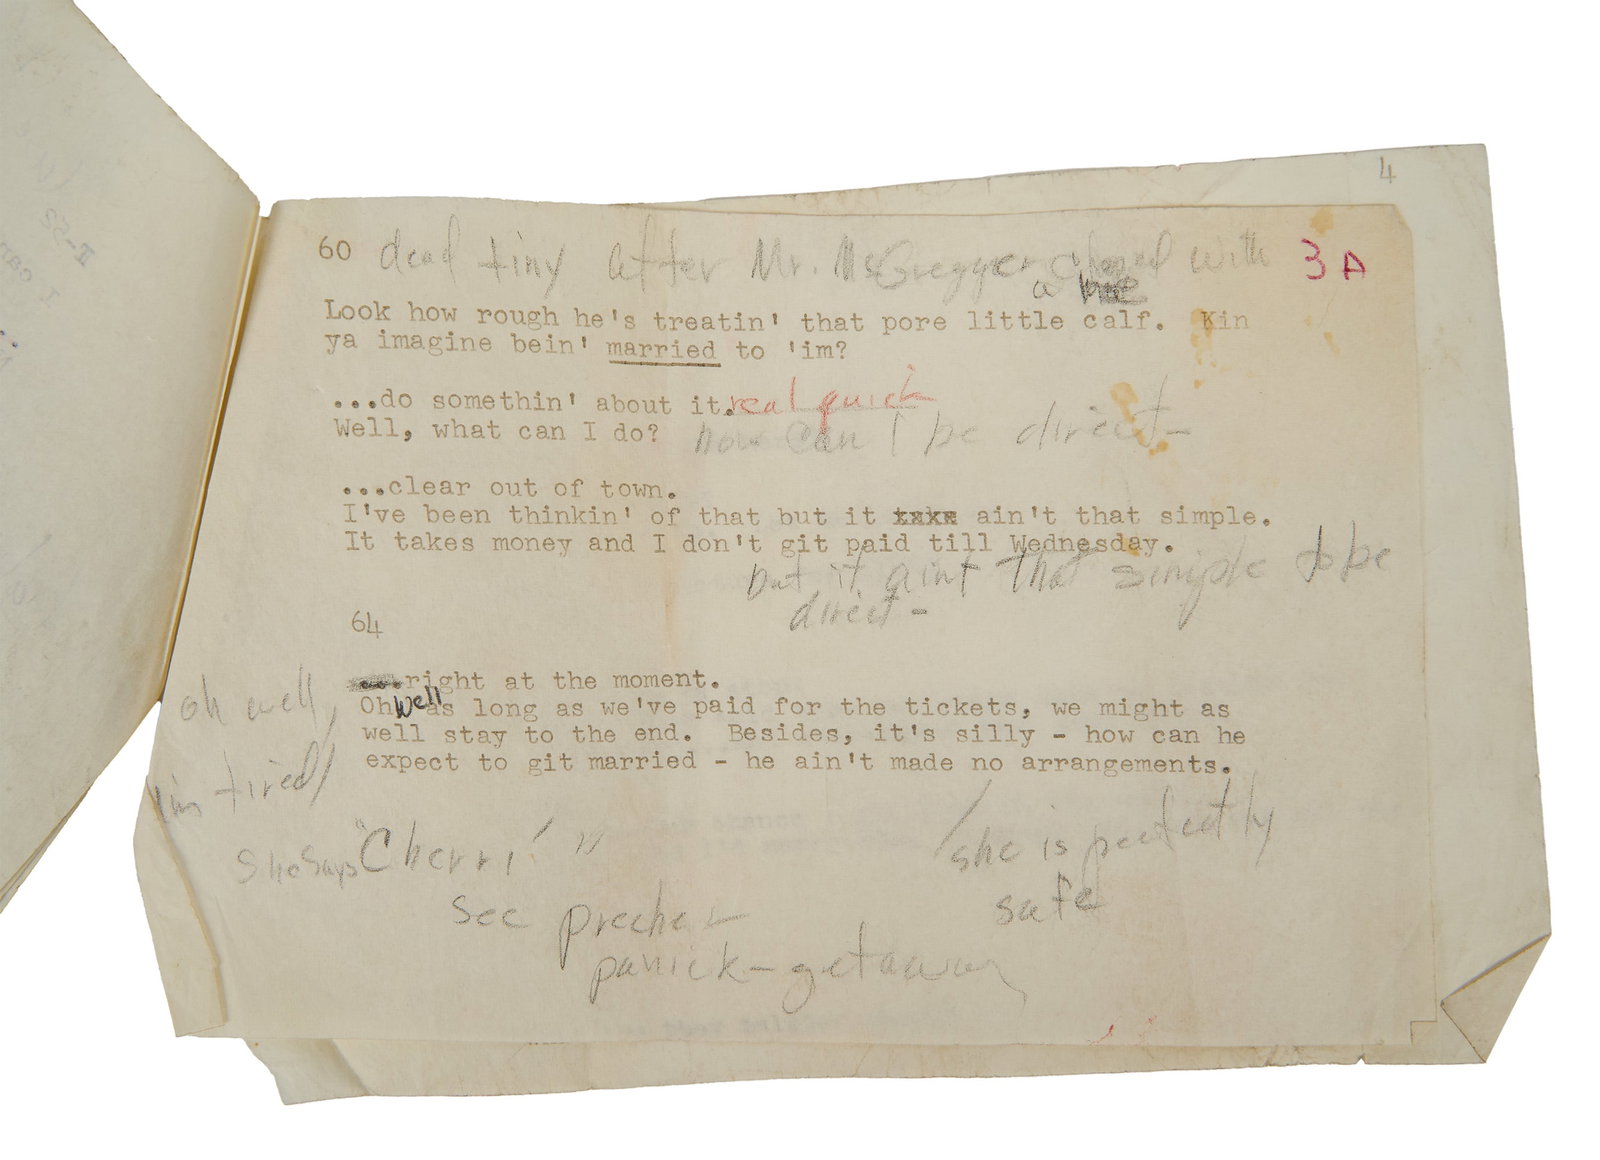 4
60 dead tiny after Mr. McGregger chased with 3A
a
Look how rough he's treatin' that pore little calf. Kin
ya imagine bein' married to 'im?
...do somethin' about it. real quick
Well, what can I do? how can I be direct-
...clear out of town.
I've been thinkin' of that but it ain't that simple.
It takes money and I don't git paid till Wednesday.
but it aint that simple to be
direct -
64
right at the moment.
oh well,
Oh well as long as we've paid for the tickets, we might as
well stay to the end. Besides, it's silly - how can he
expect to git married - he ain't made no arrangements.
im tired
she is perfectly
She says "Cherri"
safe
see precher
panick - getaway